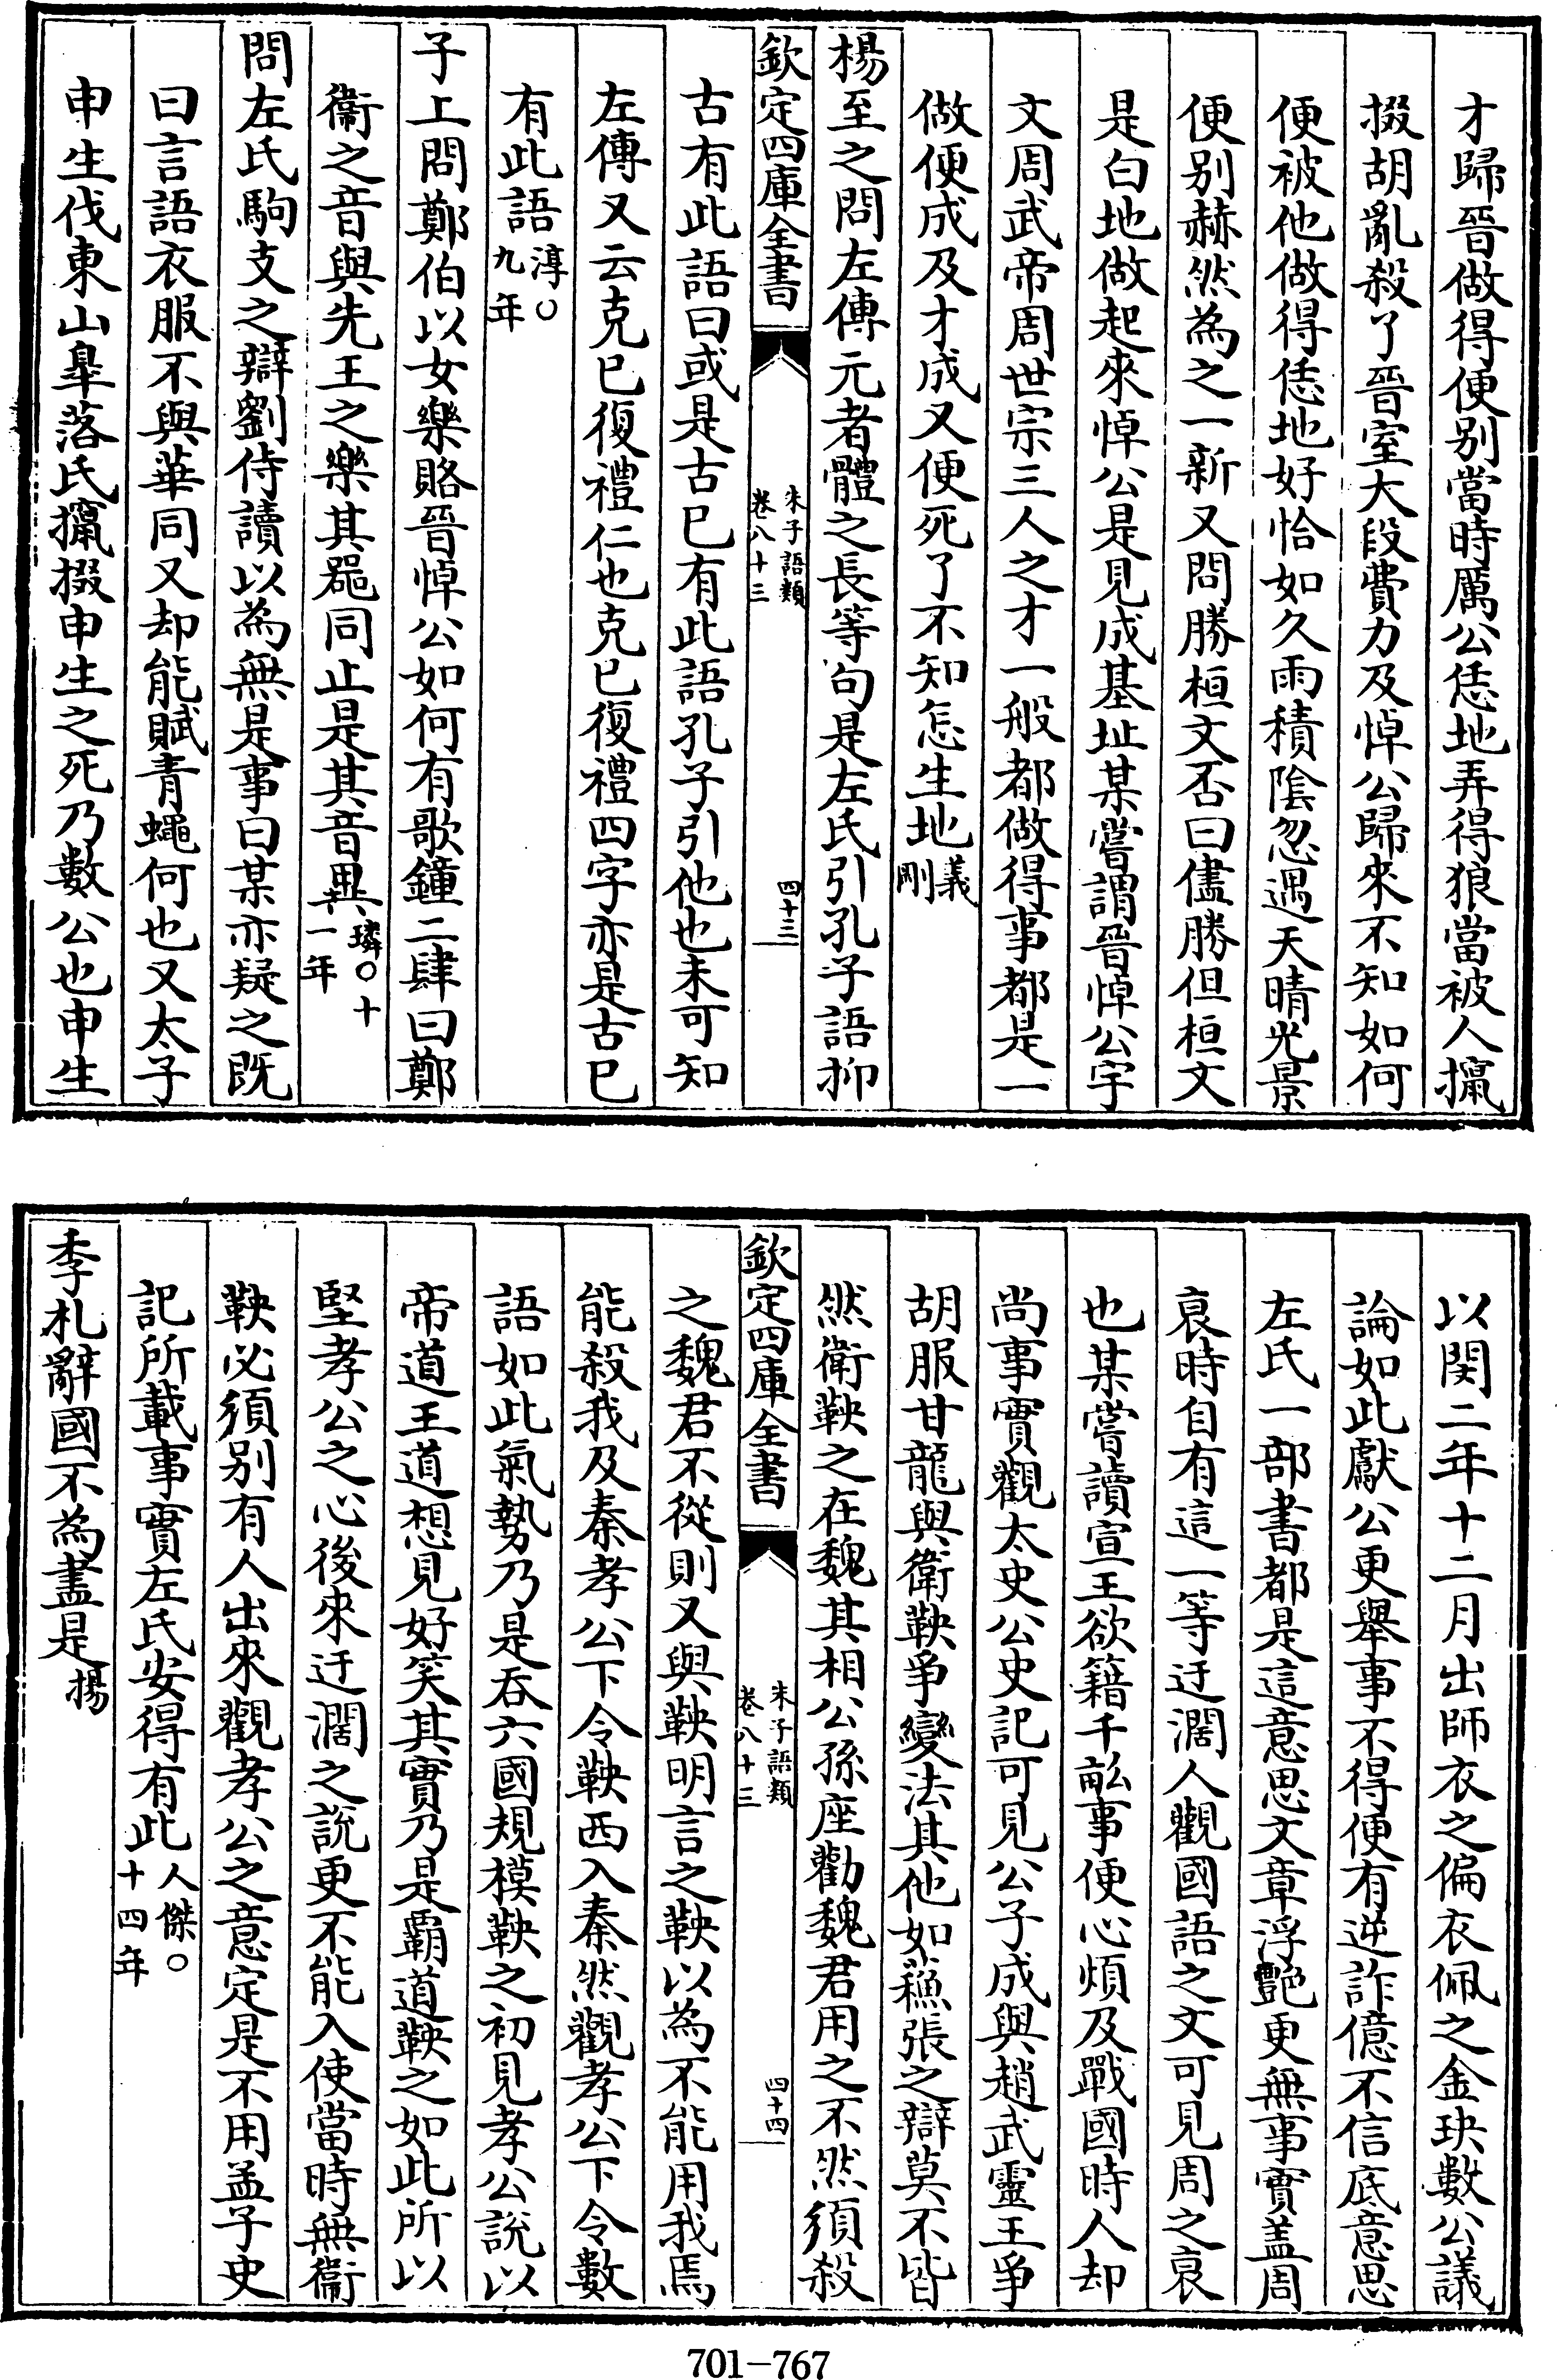 才歸晉做得便别當時厲公恁地弄得狼當被人攛
掇胡亂殺了晉室大段費力及悼公歸來不知如何
便被他做得恁地好恰如久雨積陰忽遇天晴光景
便别赫然為之一新又問勝桓文否曰儘勝但桓文
是白地做起來悼公是見成基址某嘗謂晉悼公宇
文周武帝周世宗三人之才一般都做得事都是一
做便成及才成又便死了不知怎生地義剛
楊至之問左傳元者體之長等句是左氏引孔子語抑
欽定四庫全書
朱子語類
卷八十三
四十三
古有此語曰或是古已有此語孔子引他也未可知
左傳又云克已復禮仁也克已復禮四字亦是古已
有此語淳○九年
子上問鄭伯以女樂賂晉悼公如何有歌鐘二肆曰鄭
衞之音與先王之樂其器同止是其音異璘○十一年
問左氏駒支之辯劉侍讀以為無是事曰某亦疑之既
曰言語衣服不與華同又却能賦青蠅何也又太子
申生伐東山臯落氏攛掇申生之死乃數公也申生
以閔二年十二月出師衣之偏衣佩之金玦數公議
論如此獻公更舉事不得便有逆詐億不信底意思
左氏一部書都是這意思文章浮艷更無事實盖周
衰時自有這一等迂濶人觀國語之文可見周之衰
也某嘗讀宣王欲籍千畝事便心煩及戰國時人却
尚事實觀太史公史記可見公子成與趙武靈王爭
胡服甘龍與衞鞅爭變法其他如蘇張之辯莫不皆
然衞鞅之在魏其相公孫座勸魏君用之不然須殺
欽定四庫全書
朱子語類
卷八十三
四十四
之魏君不從則又與鞅明言之鞅以為不能用我焉
能殺我及秦孝公下令鞅西入秦然觀孝公下令數
語如此氣勢乃是吞六國規模鞅之初見孝公說以
帝道王道想見好笑其實乃是覇道鞅之如此所以
堅孝公之心後來迂濶之說更不能入使當時無衞
鞅必須别有人出來觀孝公之意定是不用孟子史
記所載事實左氏安得有此人傑○十四年
季札辭國不為盡是揚
701—767